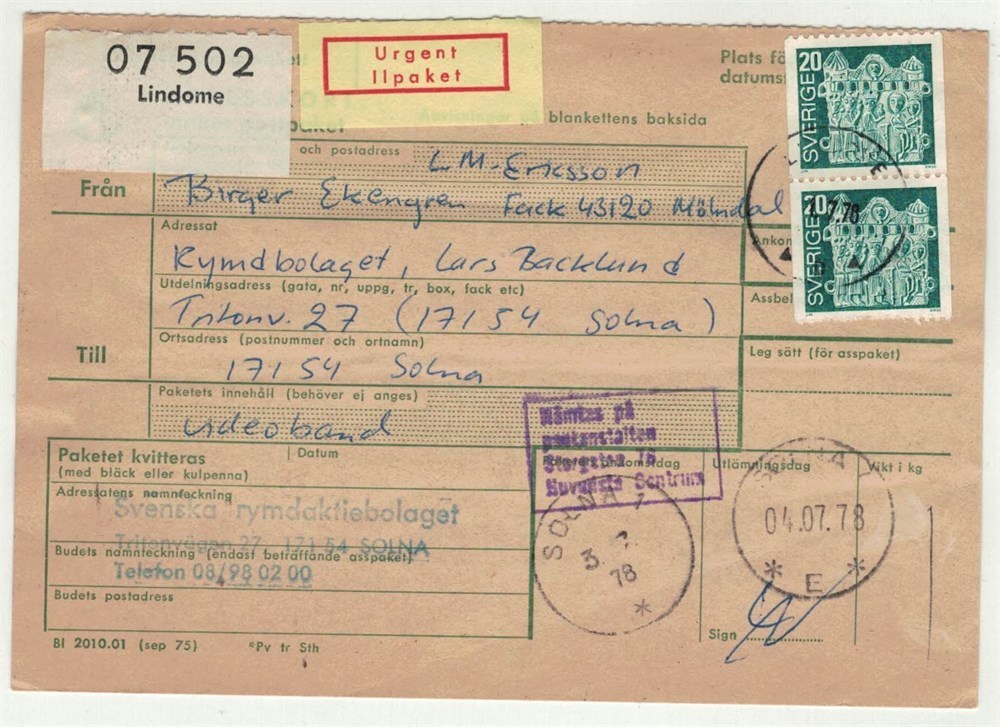 07 502
Lindome
Urgent
Ilpaket
Plats fö
datums
på blankettens baksida
och postadress
LM-Ericsson
Från
Birger Ekengren Fack 43120 Mölndal
Adressat
Rymdbolaget, Lars Backlund
Utdelningsadress (gata, nr, uppg, tr, box, fack etc)
Tritonv. 27 (17154 Solna)
Ortsadress (postnummer och ortnamn)
Till
17154 Solna
Paketets innehåll (behöver ej anges)
videoband
Ankom
Assbel
Leg sätt (för asspaket)
20
SVERIGE
20
SVERIGE
7.78
Hämtas på
postanstalten
Storgatan 16
Huvudsta Centrum
Paketet kvitteras
(med bläck eller kulpenna)
Datum
Adressatens namnteckning
Svenska rymdaktiebolaget
Tritonvägen 27, 171 54 SOLNA
Budets namnteckning (endast beträffande asspaket)
Telefon 08/98 02 00
Budets postadress
ankomstdag
Utlämningsdag
Vikt i kg
SOLNA 1
3. 7.
78
*
SOLNA 1
04.07.78
* E *
Sign
Bl 2010.01 (sep 75)
*Pv tr Sth